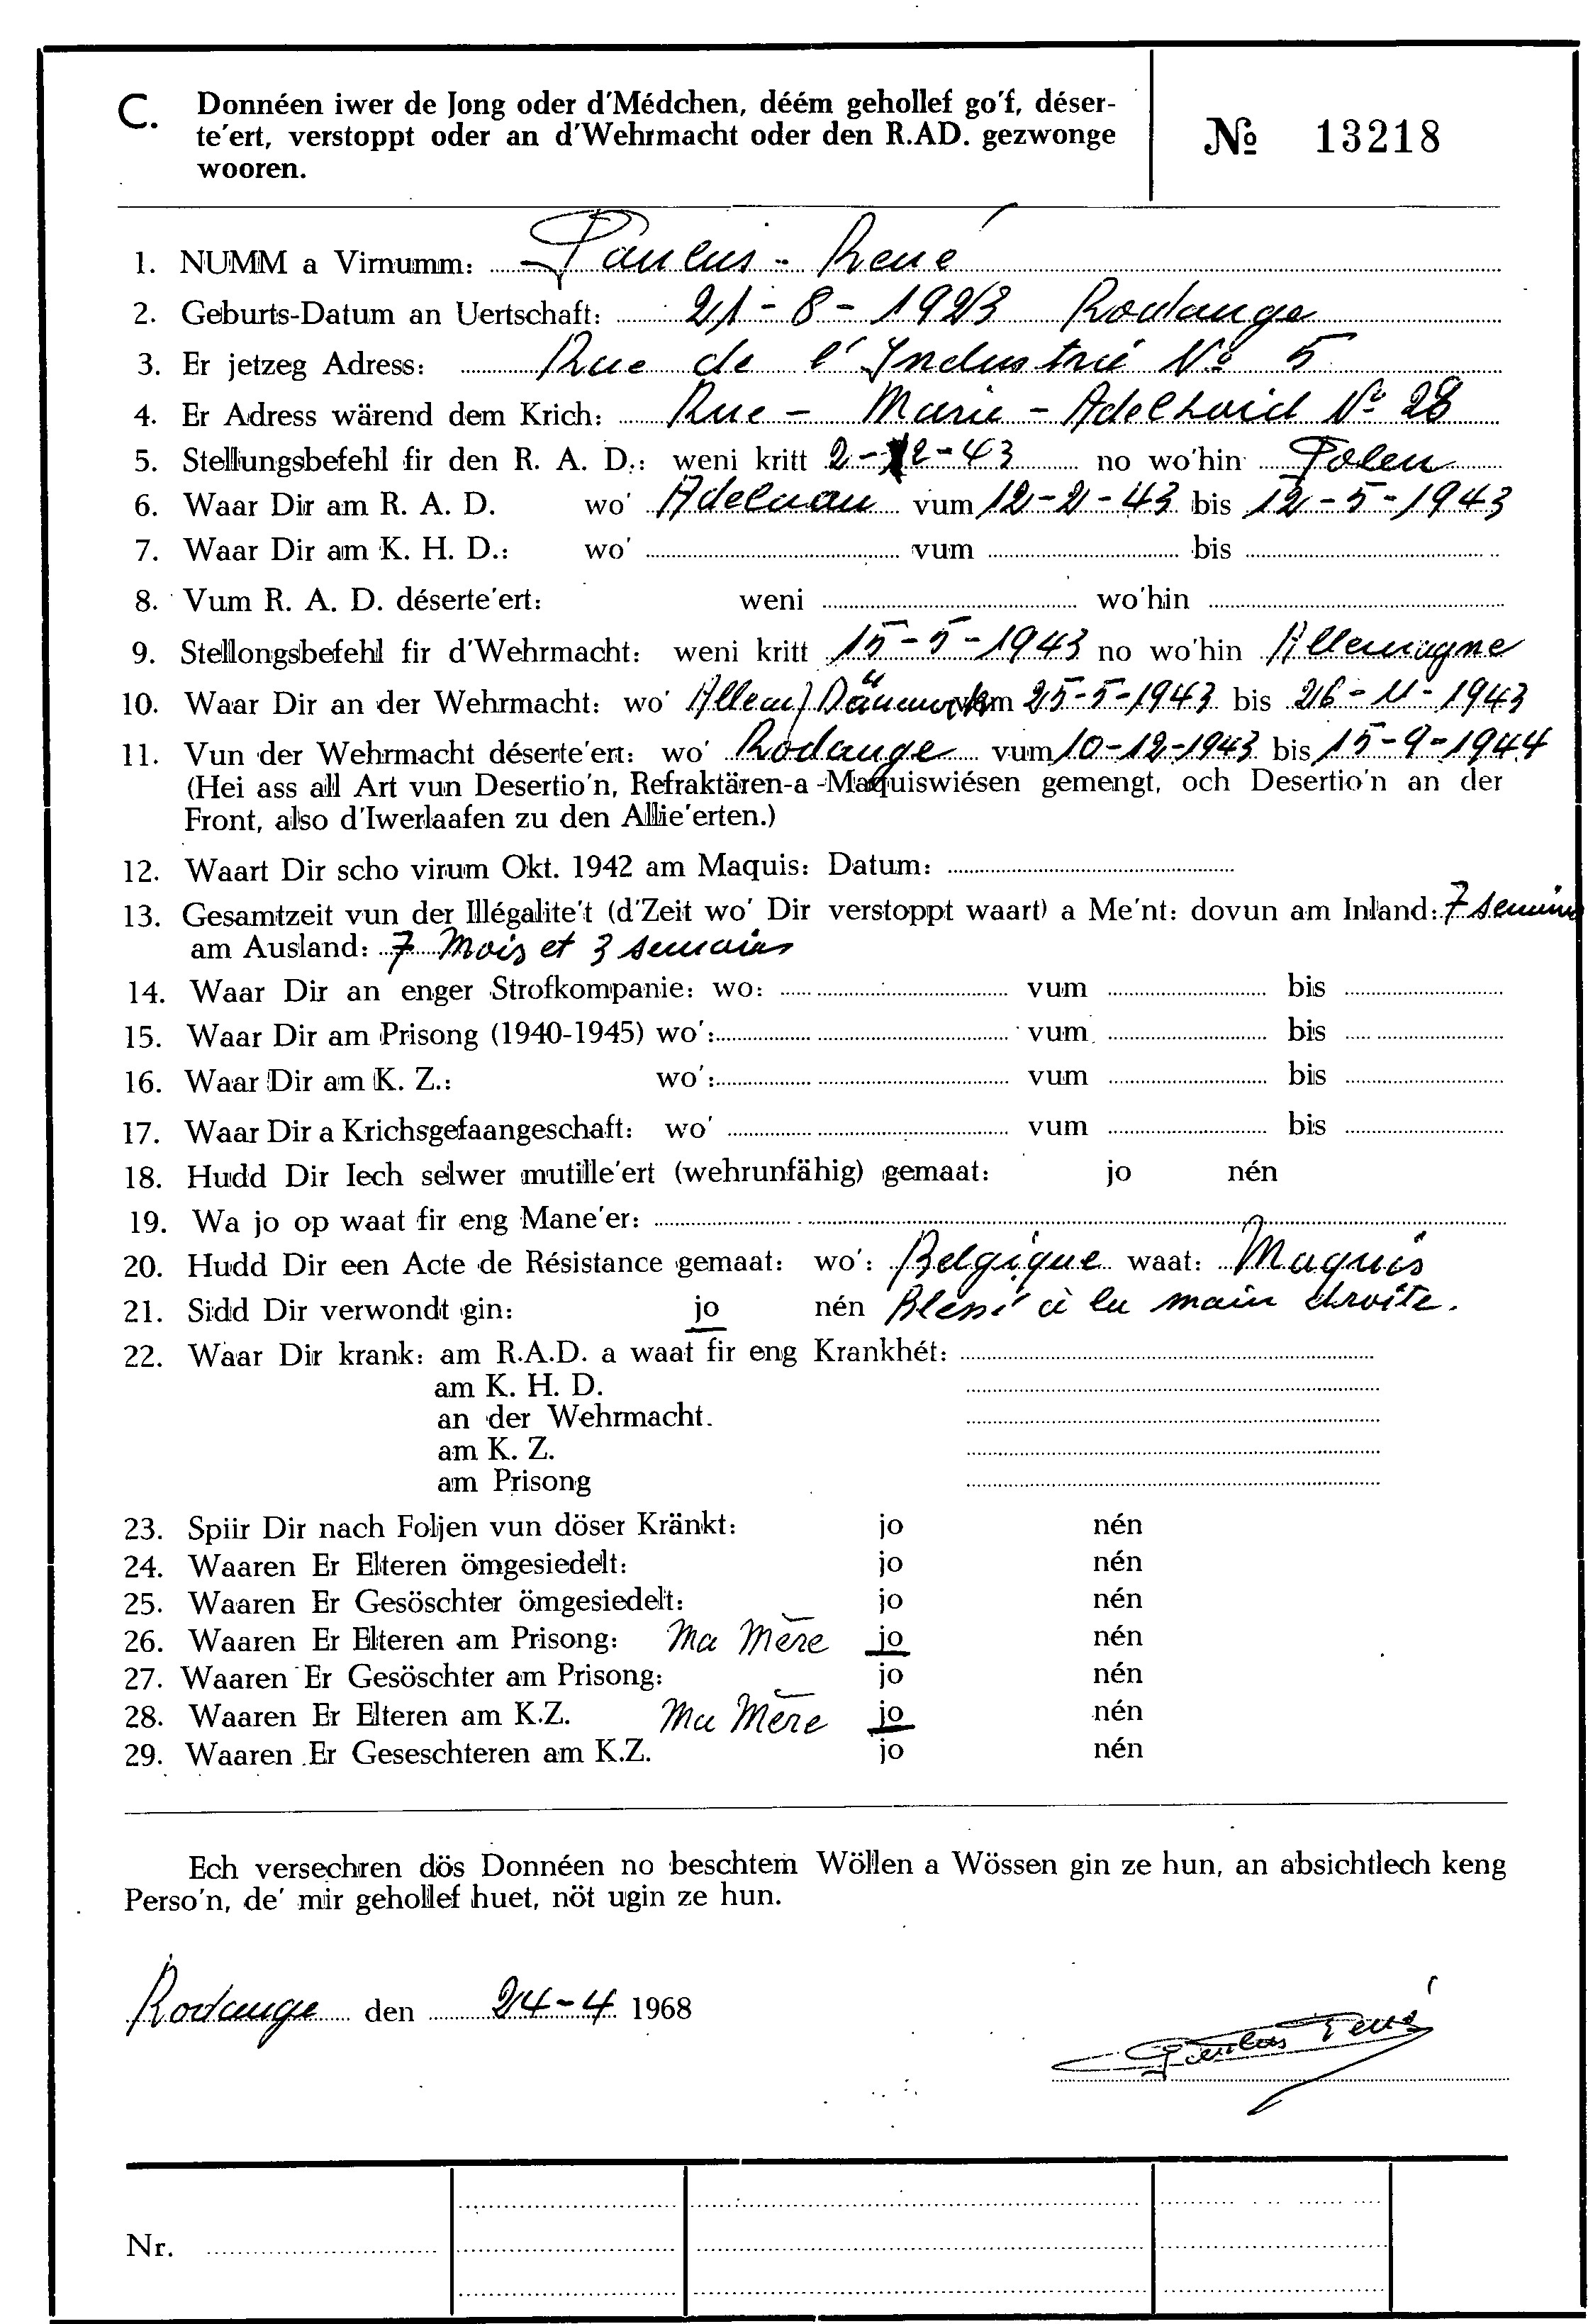 C. Donnéen iwer de Jong oder d'Médchen, déém gehollef go'f, déser-
te'ert, verstoppt oder an d'Wehrmacht oder den R.AD. gezwonge
wooren.
№ 13218
1. NUMM a Virnumm: - René
2. Geburts-Datum an Uertschaft: 21-8-1923 Rodange
3. Er jetzeg Adress: Rue de l'Industrie No 5
4. Er Adress wärend dem Krich: Rue - Marie - Adelhaid No 28
5. Stellungsbefehl fir den R. A. D.: weni kritt 2-2-43 no wo'hin Polen
6. Waar Dir am R. A. D. wo' Adelnau vum 12-2-43 bis 12-5-1943
7. Waar Dir am K. H. D.: wo' vum bis
8. Vum R. A. D. déserte'ert: weni wo'hin
9. Stellongsbefehl fir d'Wehrmacht: weni kritt 15-5-1943 no wo'hin Allemagne
10. Waar Dir an der Wehrmacht: wo' Allem/Dänemark vum 25-5-1943 bis 26-11-1943
11. Vun der Wehrmacht déserte'ert: wo' Rodange vum 10-12-1943 bis 15-9-1944
(Hei ass all Art vun Desertio'n, Refraktären-a-Maquiswiésen gemengt, och Desertio'n an der
Front, also d'Iwerlaafen zu den Allie'erten.)
12. Waart Dir scho virum Okt. 1942 am Maquis: Datum:
13. Gesamtzeit vun der Illégalite't (d'Zeit wo' Dir verstoppt waart) a Me'nt: dovun am Inland: 7
am Ausland: 7 Mois et 3
14. Waar Dir an enger Strofkompanie: wo: vum bis
15. Waar Dir am Prisong (1940-1945) wo': vum bis
16. Waar Dir am K. Z.: wo': vum bis
17. Waar Dir a Krichsgefaangeschaft: wo' vum bis
18. Hudd Dir Iech selwer mutille'ert (wehrunfähig) gemaat: jo nén
19. Wa jo op waat fir eng Mane'er:
20. Hudd Dir een Acte de Résistance gemaat: wo': Belgique waat: Maquis
21. Sidd Dir verwondt gin: jo nén Blessé à la main droite.
22. Waar Dir krank: am R.A.D. a waat fir eng Krankhét:
am K. H. D.
an der Wehrmacht.
am K. Z.
am Prisong
23. Spiir Dir nach Foljen vun döser Kränkt: jo nén
24. Waaren Er Elteren ömgesiedelt: jo nén
25. Waaren Er Gesöschter ömgesiedelt: jo nén
26. Waaren Er Elteren am Prisong: Ma Mère jo nén
27. Waaren Er Gesöschter am Prisong: jo nén
28. Waaren Er Elteren am K.Z. Ma Mère jo nén
29. Waaren Er Geseschteren am K.Z. jo nén
Ech versechren dös Donnéen no beschtem Wöllen a Wössen gin ze hun, an absichtlech keng
Perso'n, de' mir gehollef huet, nöt ugin ze hun.
Rodange den 24-4 1968
René
Nr.